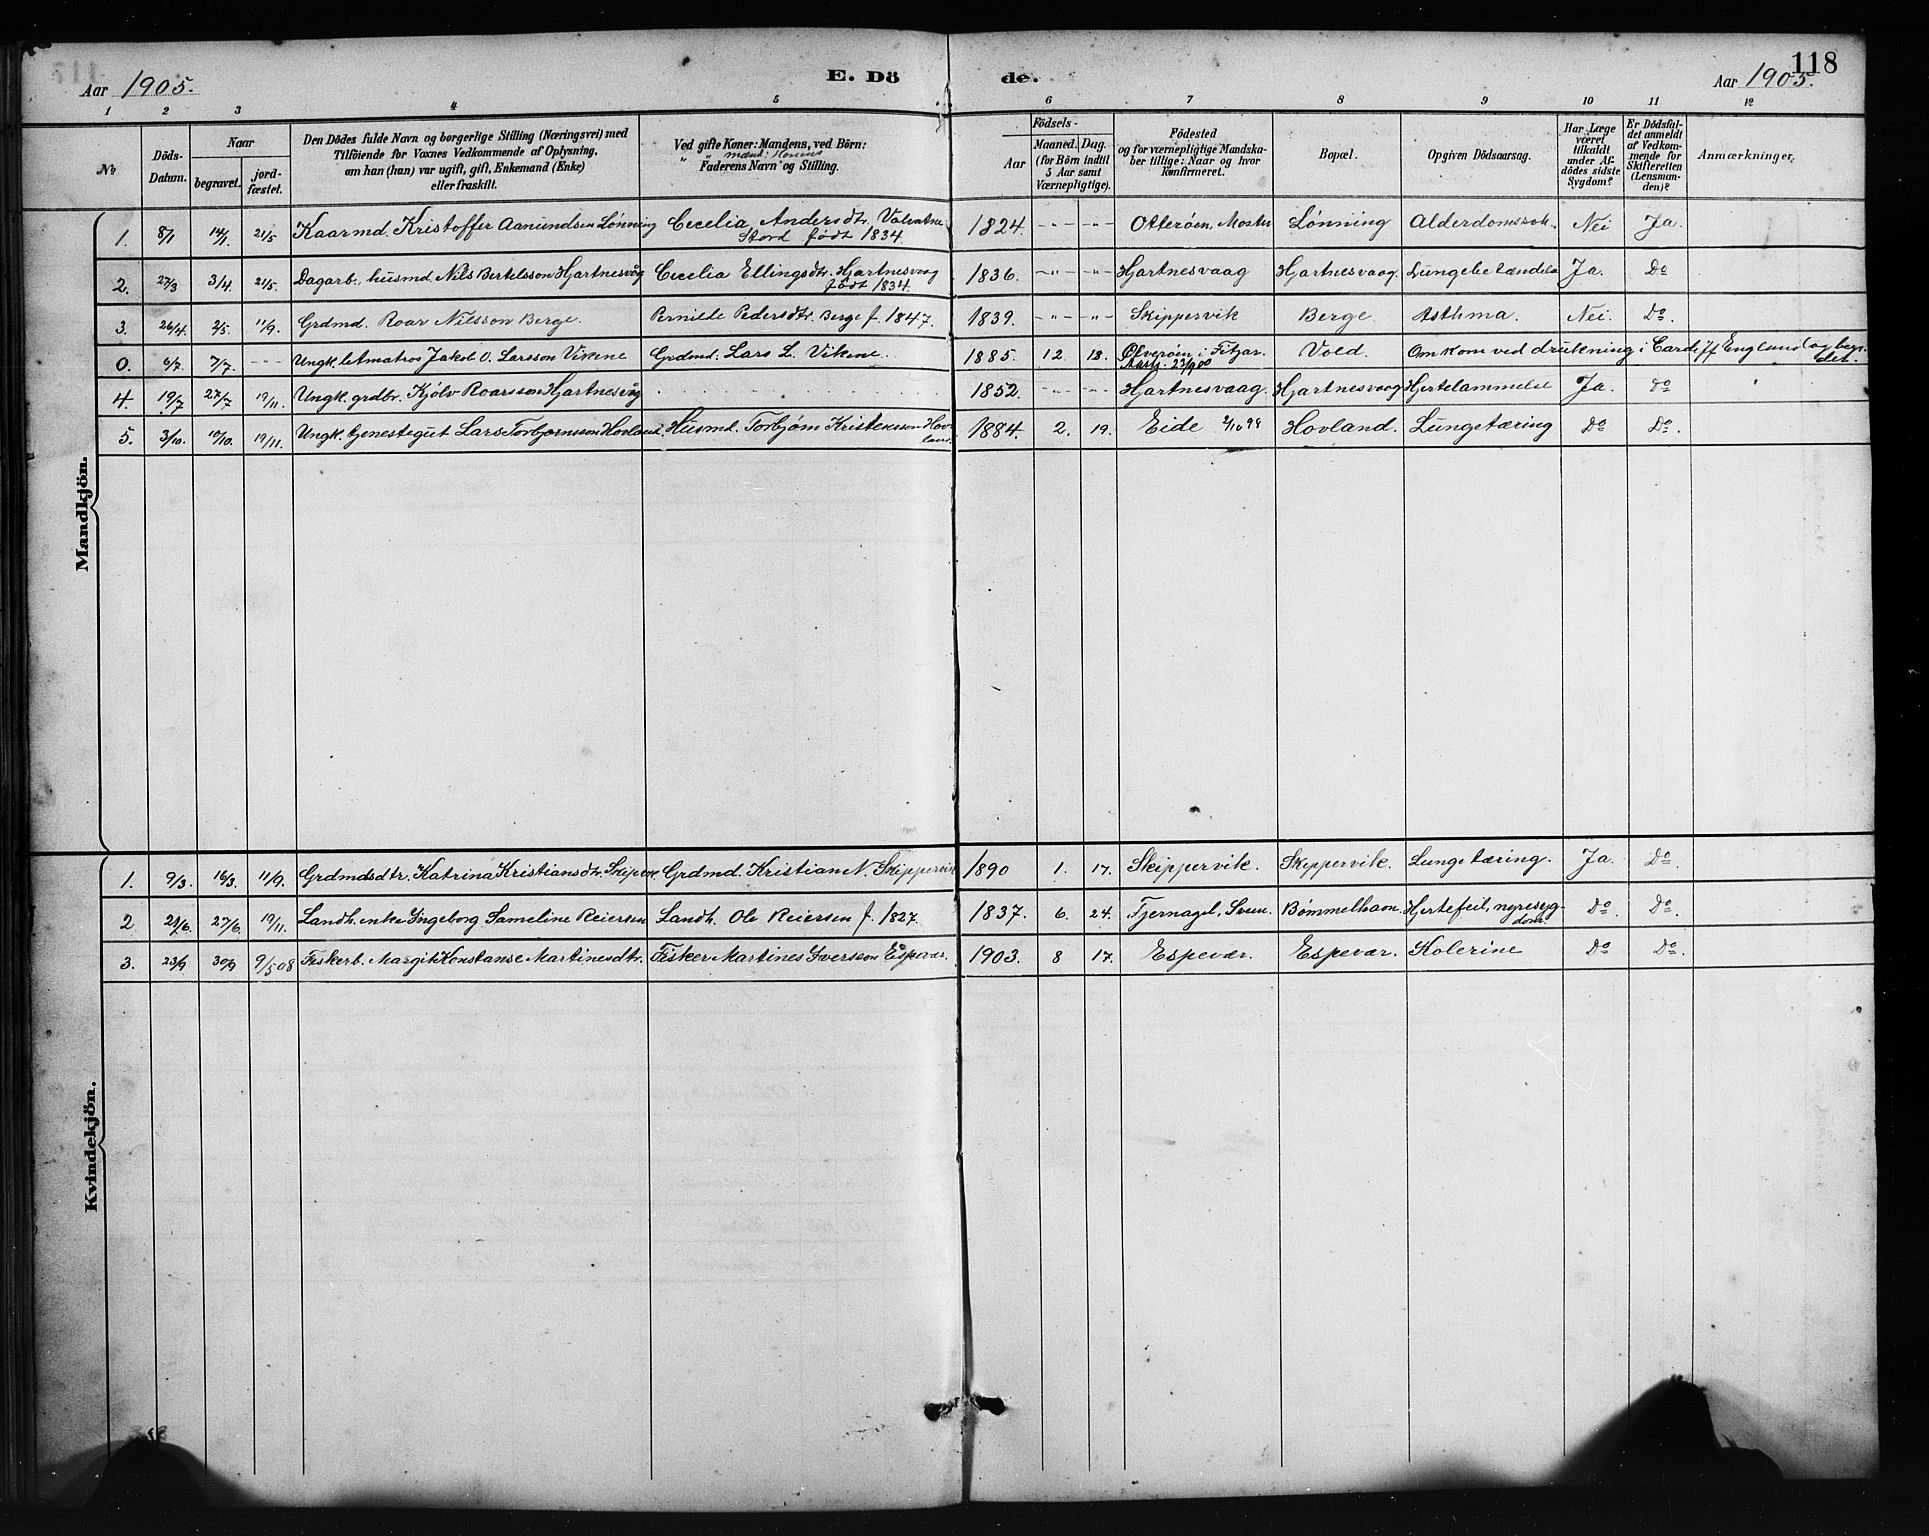 118
Aar 1905. E. Dö de. Aar 1905.
1 2 3 4 5 6 7 8 9 10 11 12
№
Döds-Datum.
Naar
begravet.
jord-fæstet.
Den Dödes fulde Navn og borgerlige Stilling (Næringsvei) med
Tilföiende for Voxnes Vedkommende af Oplysning,
om han (hun) var ugift, gift, Enkemand (Enke)
eller fraskilt.
Ved gifte Koner: Mandens, ved Börn:
" " mænd: Konens
Faderens Navn og Stilling.
Födsels-
Aar
Maaned. Dag.
(for Börn indtil
5 Aar samt
Værnepligtige).
Födested
og for værnepligtige Mandska-
ber tillige: Naar og hvor
konfirmeret.
Bopæl.
Opgiven Dödsaarsag.
Har Læge
været
tilkaldt
under Af-
dödes sidste
Sygdom?
Er Dödsfal-
det anmeldt
af Vedkom-
mende for
Skifteretten
(Lensman-
den)?
Anmærkninger.
Mandkjön.
1. 8/1 14/1. 21/5 Kaarmd. Kristoffer Aanundsen Lønning Cecelia Andersdtr. Valvatne 1824. -"- -"- Otterøen, Moster Lønning Alderdomssvk. Nei Ja.
Stord født 1834.
2. 27/3 3/4. 21/5. Dagarb., husmd. Nils Bertelsson Hjartnesvåg Cecelia Ellingsdtr. Hjartnesvaag 1836. -"- -"- Hjartnesvaag Hjartnesvaag. Lungebetændelse Ja. Do
født 1834.
3. 26/4. 2/5. 11/9. Grdmd. Roar Nilsson Berge. Pernilde Pedersdtr. Berge f. 1847. 1839. -"- -"- Skippervik Berge. Asthma. Nei. Do.
0. 6/7. 7/7. --- Ungk. letmatros Jakob O. Larsson Vikene Grdmd. Lars L. Vikene. 1885. 12. 13. Øfverøen i Fitjar. Vold. Omkom ved drukning i Cardiff England og begr-
det.
4. 19/7 27/7 19/11. Ungk. grdbr. Kjølv Roarsson Hjartnesvåg 1852. -"- -"- Hjartnesvaag. Hjartnesvaag Hjertelammelse Ja. do
5. 3/10. 10/10. 19/11. Ungk. tjenestegut Lars Torbjørnsson Hovland. Husmd. Torbjørn Kristensson Hov- 1884. 2. 19. Eide 2/10 99 Hovland. Lungetæring Do Do.
land.
Kvindekjön.
1. 9/3. 16/3. 11/9. Grdmdsdtr. Katrina Kristiansdtr. Skipevk. Grdmd. Kristian N. Skippervik 1890 1. 17. Skippervik. Skippervik. Lungetæring. Ja. Do
2 21/6. 27/6. 19/11. Landh. enke Ingeborg Sameline Reiersen Landh. Ole Reiersen f. 1827. 1837. 6. 24. Tjernagel, Sveen. Bømmelhavn. Hjertefeil, nyresyg- Do. Do.
dom.
3. 23/9 30/9 9/5 08 Fiskerb. Margit Konstanse Martinesdtr. Fisker Martines Iversen Espevær. 1903. 8 17. Espevær. Espevær. Kolerine Do Do.